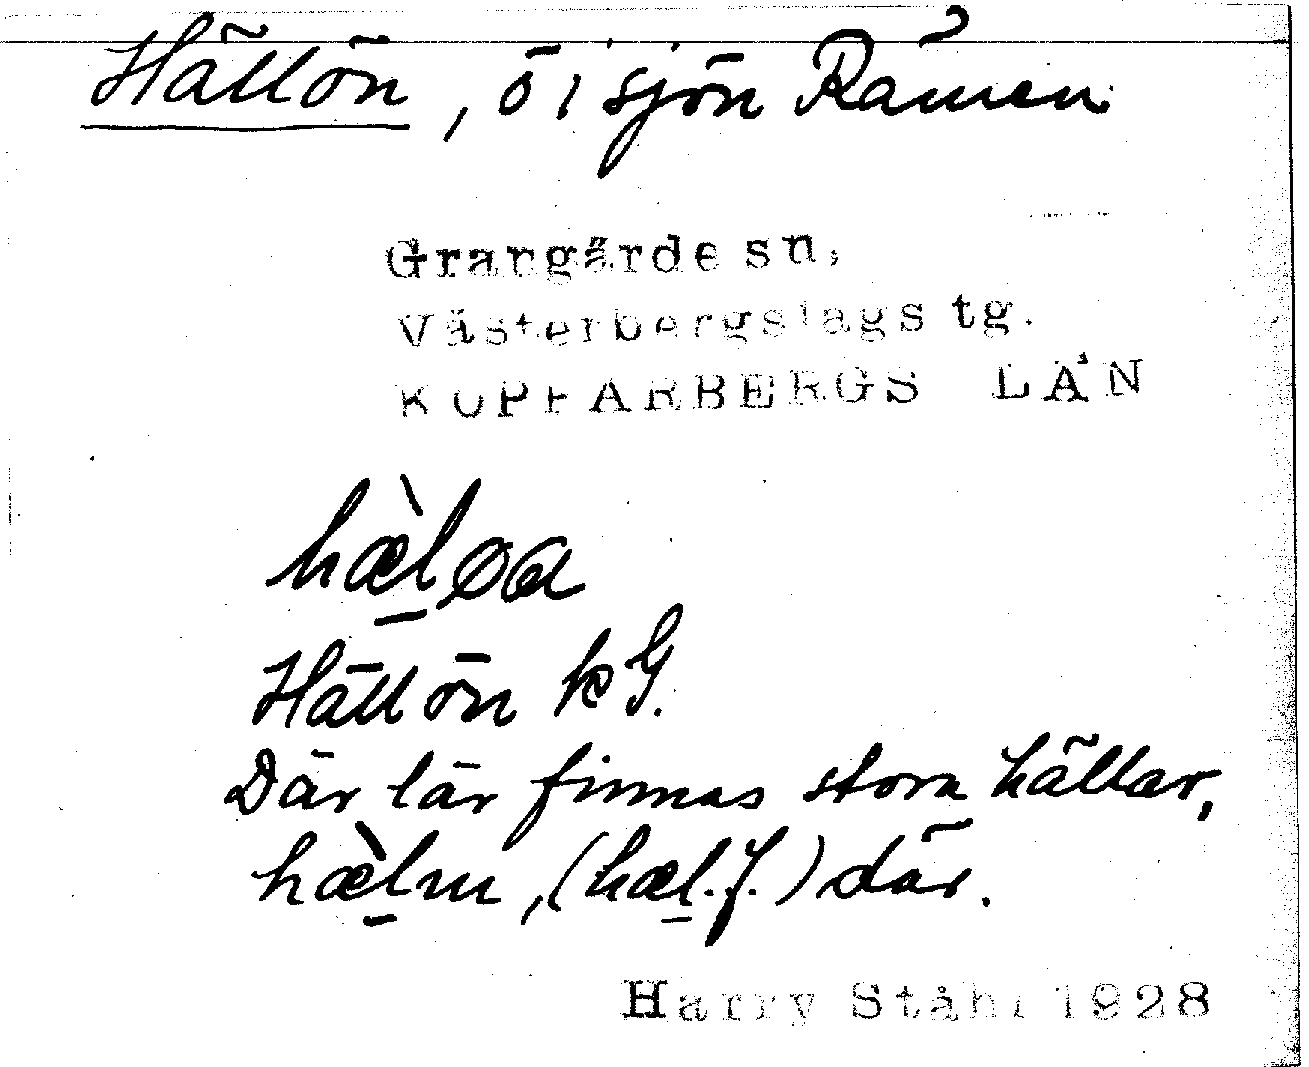 Hällön, ö i sjön Rämen
Grangärde sn,
Västerbergslags tg.
KOPPARBERGS LÄN
hæ̀løa
Hällön kG.
Där lär finnas stora hällar,
hæ̀lnι, (hæl. f.) där.
Harry Ståhl 1928